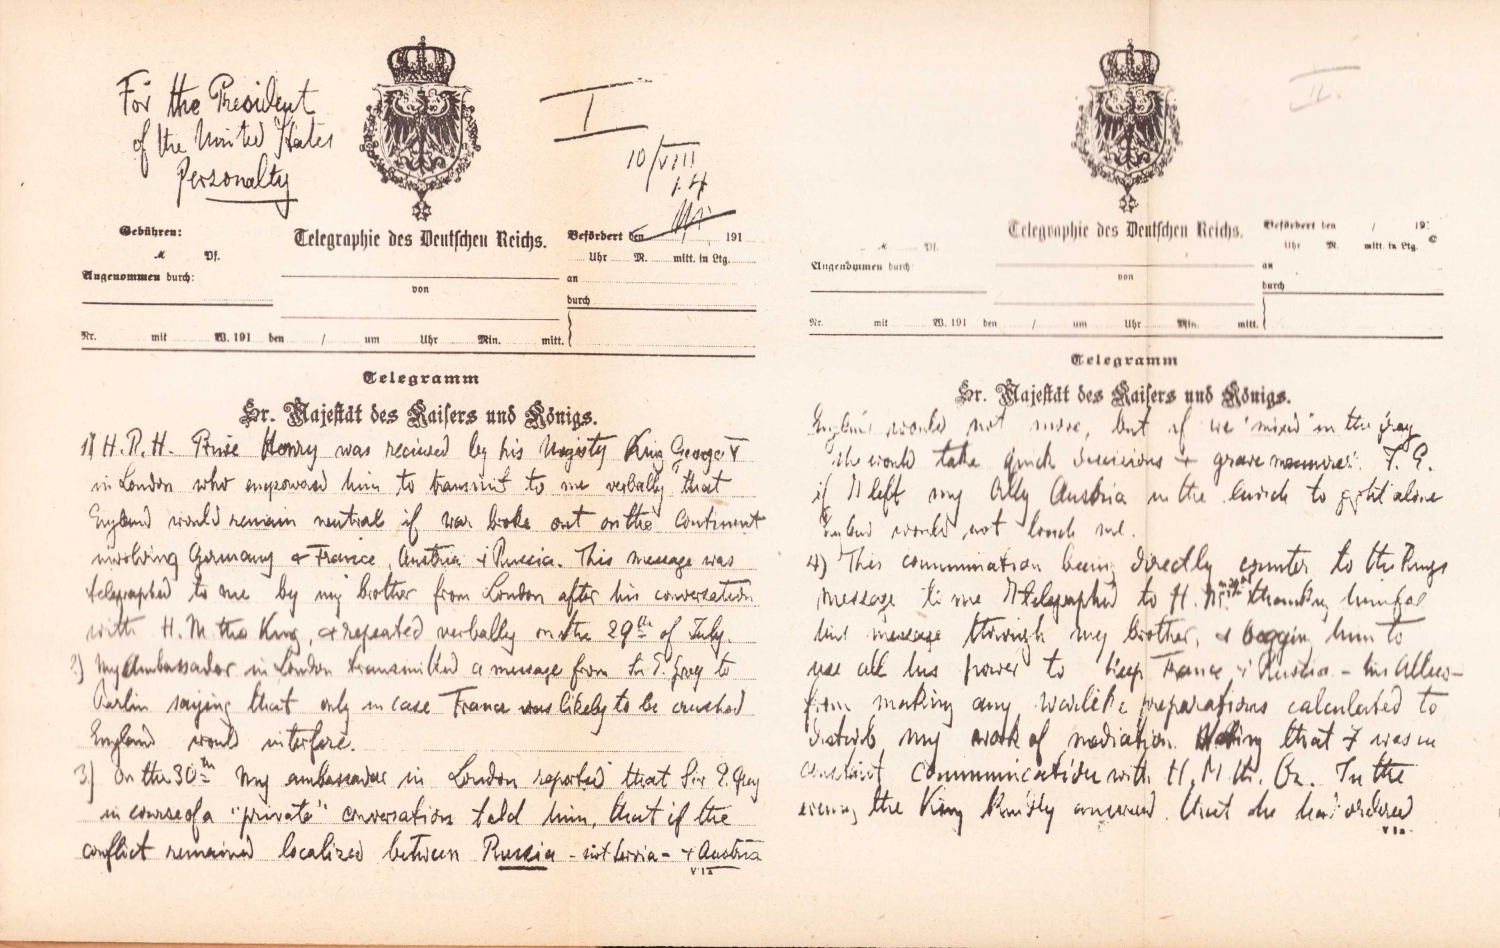 For the President
of the United States
Personally
I
10/VIII
14
Gebühren:
M Pf.
Angenommen durch:
Telegraphie des Deutschen Reichs.
von
Befördert den / 191
Uhr M. mitt. in Ltg.
an
durch
Nr. mit W. 191 den / um Uhr Min. mitt.
Telegramm
Sr. Majestät des Kaisers und Königs.
1) H.R.H. Prince Henry was received by his Majesty King George V
in London who empowered him to transmit to me verbally that
England would remain neutral if war broke out on the Continent
involving Germany & France, Austria & Russia. This message was
telegraphed to me by my brother from London after his conversation
with H.M. the King, & repeated verbally on the 29th of July.
2) My Ambassador in London transmitted a message from Sir E. Grey to
Berlin saying that only in case France was likely to be crushed
England would interfere.
3) On the 30th my ambassador in London reported that Sir E. Grey
in course of a "private" conversation told him, that if the
conflict remained localized between Russia - not Servia - & Austria
V 1a
II.
Telegraphie des Deutschen Reichs.
M Pf.
Angenommen durch:
von
Befördert den / 191
Uhr M. mitt. in Ltg.
an
durch
Nr. mit W. 191 den / um Uhr Min. mitt.
Telegramm
Sr. Majestät des Kaisers und Königs.
England would not move, but if we "mixed" in the fray
she would take quick decisions & grave measures. I.E.
if I left my Ally Austria in the lurch to fight alone
England would not touch me.
4) This communication being directly counter to the King's
message to me I telegraphed to H.M. on 29th or 30th thanking him for
his message through my brother, & begging him to
use all his power to keep France & Russia - his Allies -
from making any warlike preparations calculated to
disturb my work of mediation stating that I was in
constant communication with H.M. the Cz. In the
evening the King kindly answered that he had ordered
V 1a.